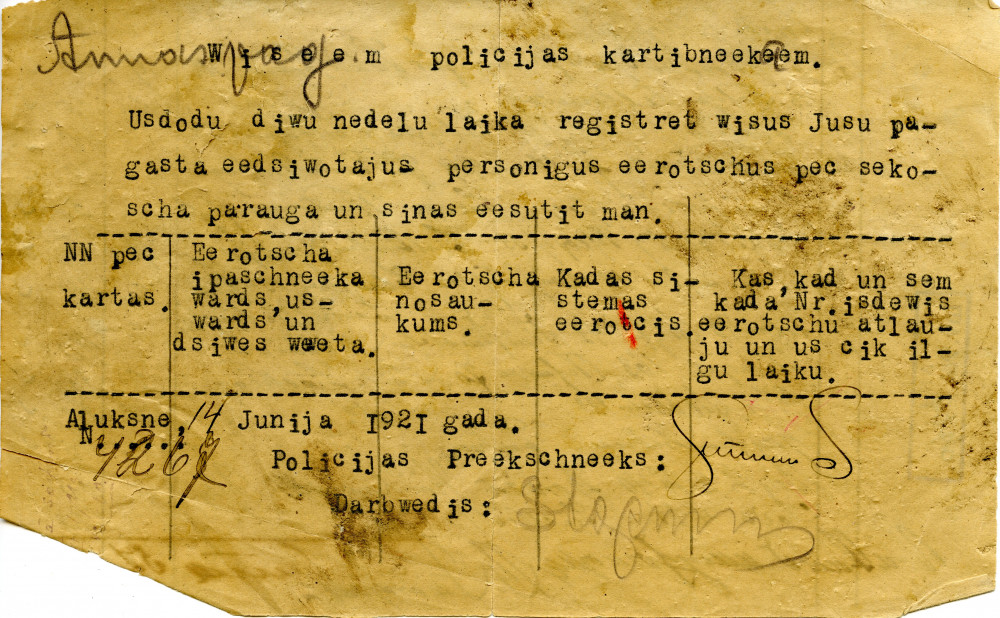 Annas pag.
Wiseem policijas kartibneekeem.
Usdodu diwu nedelu laika registret wisus Jusu pa-
gasta eedsiwotajus personigus eerotschus pec seko-
scha parauga un sinas eesutit man.
NN pec
kartas.
Eerotscha
ipaschneeka
wards, us-
wards, un
dsiwes weeta.
Eerotscha
nosau-
kums.
Kadas si-
stemas
eerotcis.
Kas, kad un sem
kada Nr. isdewis
eerotschu atlau-
ju un us cik il-
gu laiku.
Aluksne, 14 Junija 1921 gada.
N. 4267
Policijas Preekschneeks:
Darbwedis: